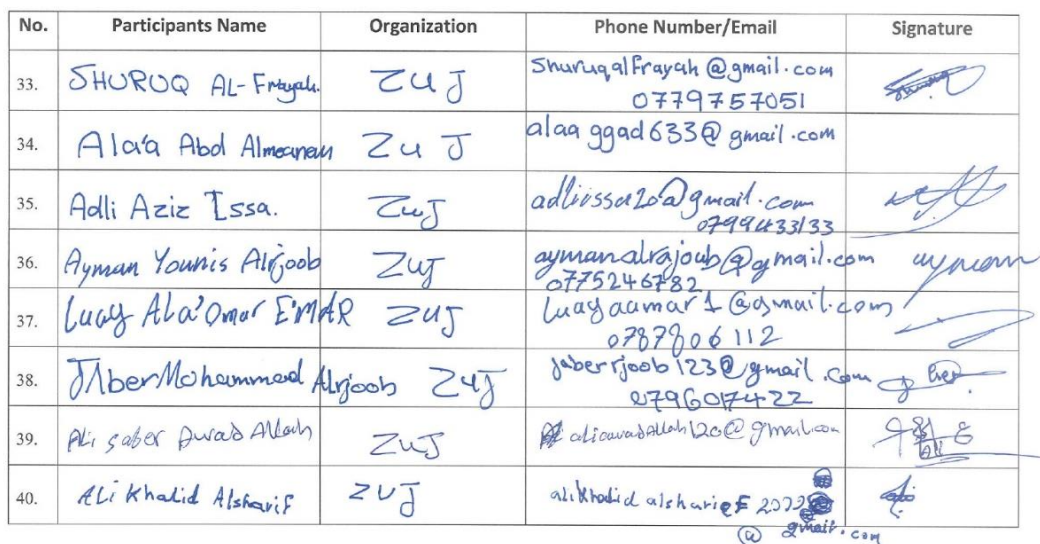 No. Participants Name Organization Phone Number/Email Signature
33. SHURUQ AL-Frayah. ZUJ Shuruqalfrayah@gmail.com
0779757051
34. Ala'a Abd Almeanem ZUJ alaaggad633@gmail.com
35. Adli Aziz Issa. ZUJ adliissa20@gmail.com
0799433133
36. Ayman Younis Alrjoob ZUJ aymanalrajoub@gmail.com aymam
0775246782
37. Luay Ala'Omar E'MAR ZUJ Luayaamar1@gmail.com
0787806112
38. JAber Mohammed Alrjoob ZUJ jaberrjoob123@gmail.com
0796017422
39. Ali saber Awad Allah ZUJ aliawadAllah120@gmail.com
40. ALi Khalid Alsharif ZUJ alikhalidalsharief2020
@ gmail.com